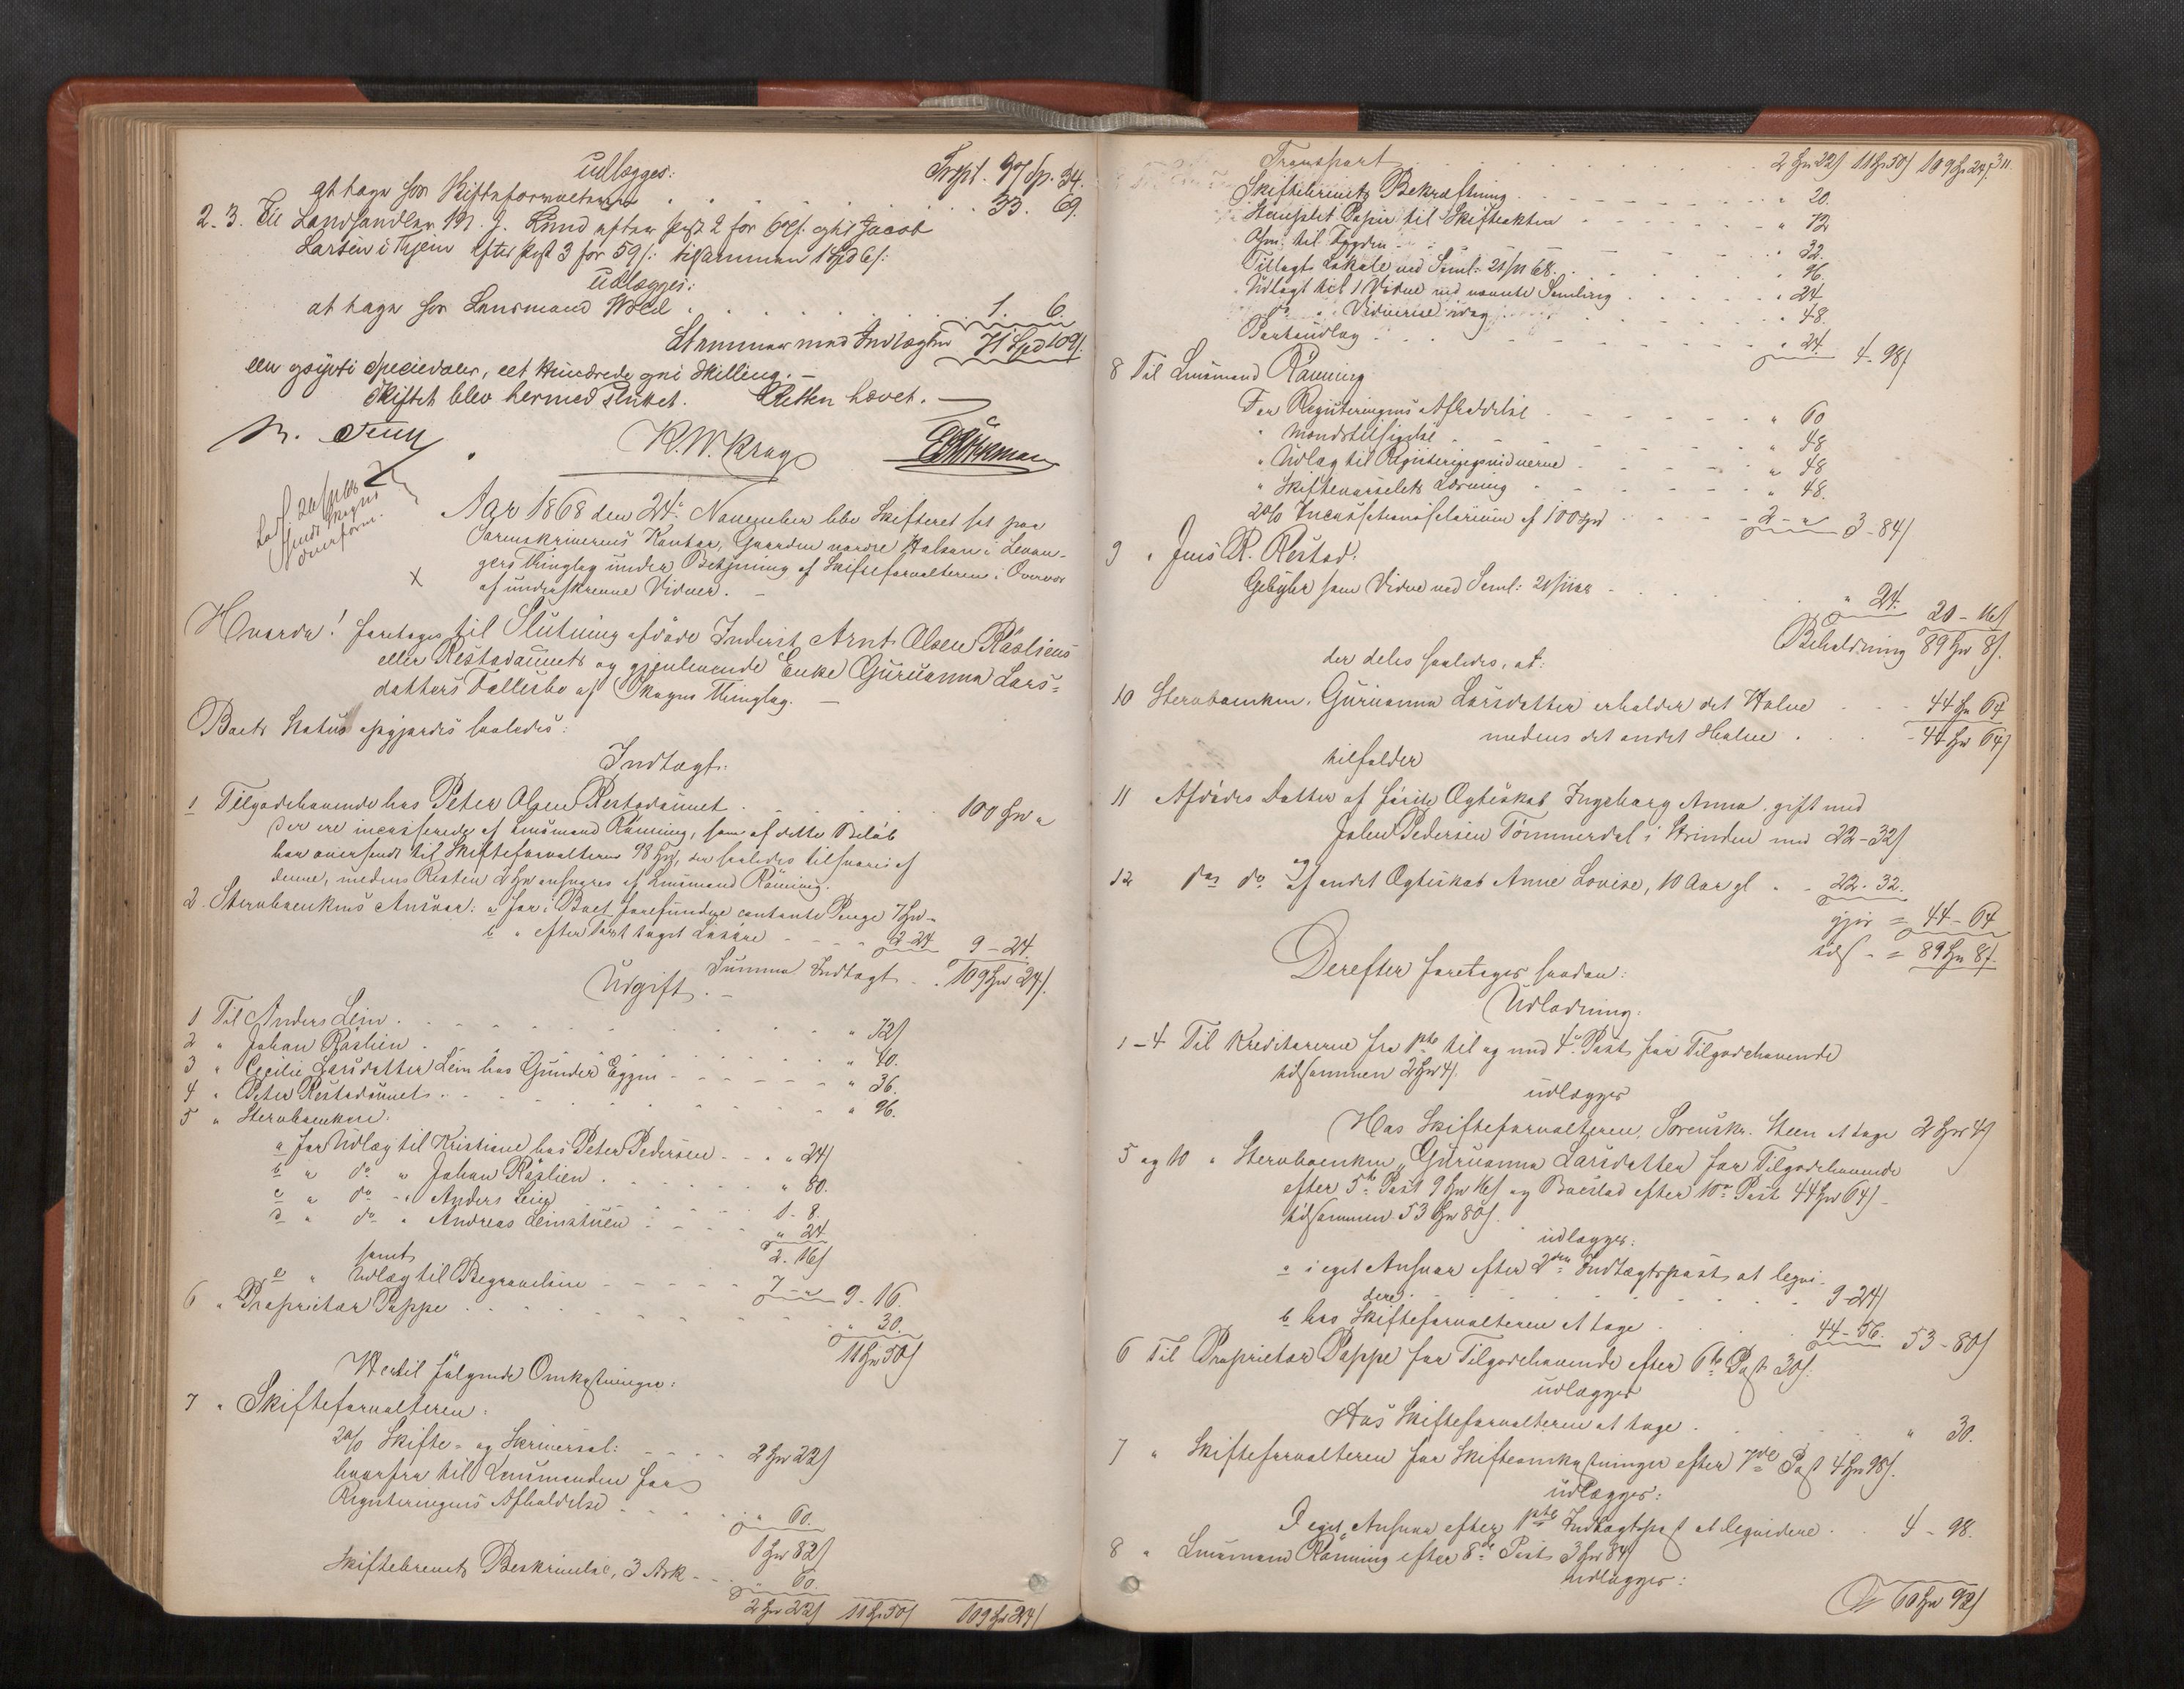 udlægges: Trspt. 37 Sp. 34.
at tage hos Skifteforvalteren . . . 33. 69.
2. 3. Til Landhandler M. J. Lund efter Post 2 for 67 s. og til Jacob
Larsen i Hjem efter Post 3 for 59 s: tilsammen 1 Spd 6 s:
udlægges:
at tage hos Lensmand Wold . . . 1. 6.
Stemmer med Indtægten 71 Spd 109 s.
een og syvti Speciedaler, eet Hundrede og ni Skilling. –
Skiftet blev hermed sluttet. Retten hævet. –
K. W. Krag
Aar 1868 den 24de November blev Skifteret sat paa
Sorenskriverens Kontor, Gaarden nordre Halsan i Levan-
gers Thinglag under Betjening af Skifteforvalteren i Overvær
af underskrevne Vidner. –
X
Hvorda! foretages til Slutning afdøde Inderst Arnt Olsen Råsliens
eller Restadaunets og gjenlevende Enke Gurianna Lars-
datters Fællesbo af Skogns Thinglag. –
Boets Status opgjordes saaledes:
Indtægt:
1 Tilgodehavende hos Peter Olsen Restadaunet . . . 100 Spd "
Der ere incasserede af Lensmand Rånning, som af dette Beløb
har oversendt til Skifteforvalteren 98 Spd, der saaledes tilsvares af
denne, medens Resten 2 Spd ansvares af Lensmand Rånning.
2 Stervboenkens Ansvar: a for i Boet forefundne contante Penge 7 Spd "
b " efter Taxt taget Løsøre - - - " 2-24 9 - 24.
Summa Indtægt . . 109 Spd 24 s.
Udgift. –
1 Til Anders Lein . . . " 72 s
2 " Johan Råslien . . . " 40.
3 " Cecilie Larsdatter Lein hos Gunder Eggen - - - " 36.
4 " Peter Restadaunet . . . " 96.
5 " Stervboenken:
a for Udlæg til Kristiane hos Peter Pedersen - . " 24 s
b " do " Johan Råslien . . . " 80.
c " do - " Anders Lein . . . 1 - 8.
d " do " Andreas Leinstuen . . . " 24
2. 16 s
samt
e " Udlæg til Begravelsen - - - 7 - " 9 - 16.
6 " Proprietær Pappe . . . " 30.
11 Spd 50 s
Hertil følgende Omkostninger:
7 " Skifteforvalteren:
2 0/0 Skifte- og Skriversal: - - - 2 Spd 22 s
hvorfra til Lensmanden for
Registreringens Afholdelse . . . " 60.
1 Spd 82 s
Skiftebrevets Beskrivelse, 3 Ark - - " 60.
2 Spd 22 s 11 Spd 50 s 109 Spd 24 s
311.
Transport . . . 2 Spd 22 s 11 Spd 50 s 109 Spd 24 s
Skiftebrevets Bekræftning . . . " 20.
Stemplet Papir til Skifteakten . . . " 72
" 32.
Tillagt Lokale ved Saml: 21/11 68. . . . " 96.
Udlagt til 1 Vidne ved nævnte Samling . . . " 24
" 48.
" 24. 4 - 98 s
8 Til Lensmand Rånning
For Registreringens Afholdelse . . . " 60
" 48
" Udlæg til Registreringsvidnerne . . . " 48
" Skiftevarselets Læsning . . . " 48.
2 0/0 Incassationssalarium af 100 Spd . . . 2 - " 3 - 84 s
9 " Jens R. Restad.
Gebyhr som Vidne ved Saml: 21/11 68 . . . " 24.
20 - 16 s
Beholdning 89 Spd 8 s.
der deles saaledes, at:
10 Stervboenken, Gurianna Larsdatter erholder det Halve . . . 44 Spd 64
medens det andet Halve . . . 44 Spd 64 s
tilfalder
11 Afdødes Datter af første Ægteskab Ingeborg Anna, gift med
Johan Pedersen Tømmerdal i Strinden med 22 - 32 s
12 og
do do af andet Ægteskab Anne Lovise, 10 Aar gl . . 22. 32.
gjør = 44 - 64
tils. = 89 Spd 8 s.
Derefter foretages saadan:
Udlodning:
1 - 4 Til Kreditorerne fra 1ste til og med 4de Post for Tilgodehavende
tilsammen 2 Spd 4 s.
udlægges
Hos Skifteforvalteren, Sorenskr. Steen at tage 2 Spd 4 s
5 og 10 " Stervboenken, Gurianna Larsdatter for Tilgodehavende
efter 5te Post 9 Spd 16 s og Boeslod efter 10de Post 44 Spd 64 s -
tilsammen 53 Spd 80 s.
udlægges:
a i eget Ansvar efter 2den Indtægtspost at liqvi-
dere . . . 9-24 s
b hos Skifteforvalteren at tage . . . 44 - 56. 53 - 80 s
6 Til Proprietær Pappe for Tilgodehavende efter 6te Post 30 s.
udlægges
Hos Skifteforvalteren at tage . . . " 30.
7 " Skifteforvalteren for Skifteomkostninger efter 7de Post 4 Spd 98 s.
udlægges:
I eget Ansvar efter 1ste Indtægtspost at liqvidere . . 4 - 98.
8 " Lensmand Rånning efter 8de Post 3 Spd 84 s
udlægges:
60 Spd 92 s